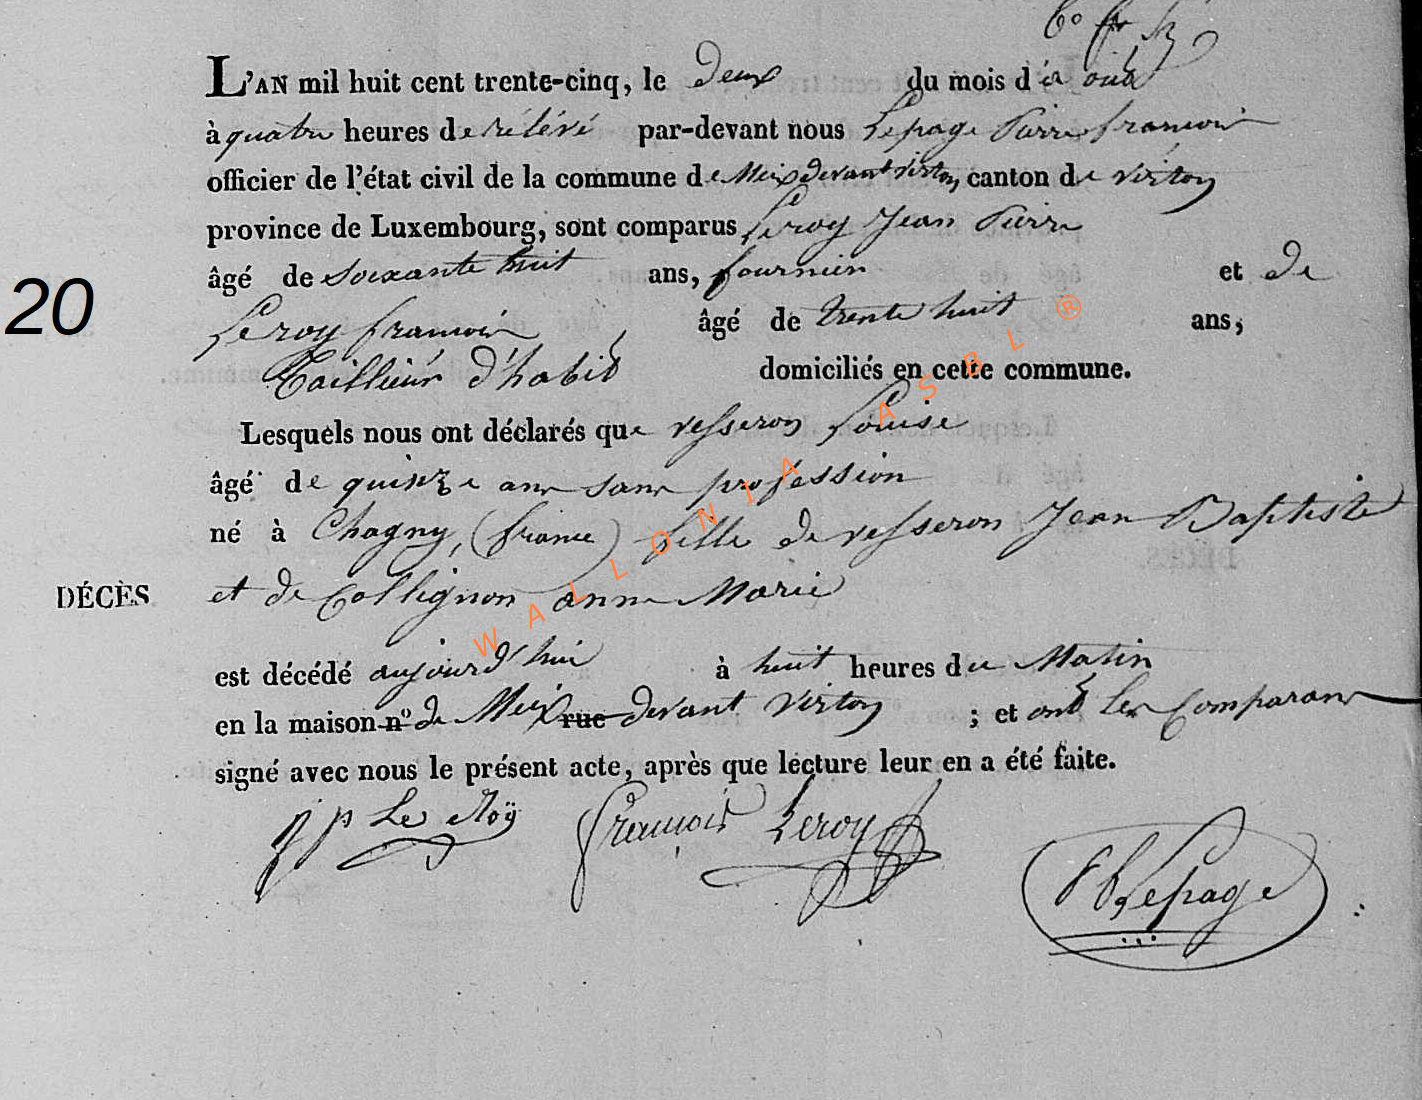 L'AN mil huit cent trente-cinq, le deux du mois d'a out
à quatre heures de rélévé par-devant nous Lepage Pierre francois
officier de l'état civil de la commune de Meix devant virton, canton de virton
province de Luxembourg, sont comparus Leroy Jean Pierre
âgé de soixante huit ans, fournier et de
20
Leroy francois âgé de trente huit ans,
Tailliéur d'habit domiciliés en cette commune.
Lesquels nous ont déclarés que vesseron Louise
âgé de quinze ans sans proféssion
né à Chagny, (france) fille de vesseron Jean Baptiste
DÉCÈS et de Collignon anne Marie
est décédé aujourd'hui à huit heures du Matin
en la maison n.º de Meix rue devant virton ; et ont les Comparans
signé avec nous le présent acte, après que lecture leur en a été faite.
jp Le Roÿ françois Leroy
Lepage
WALLONIA ASBL ®